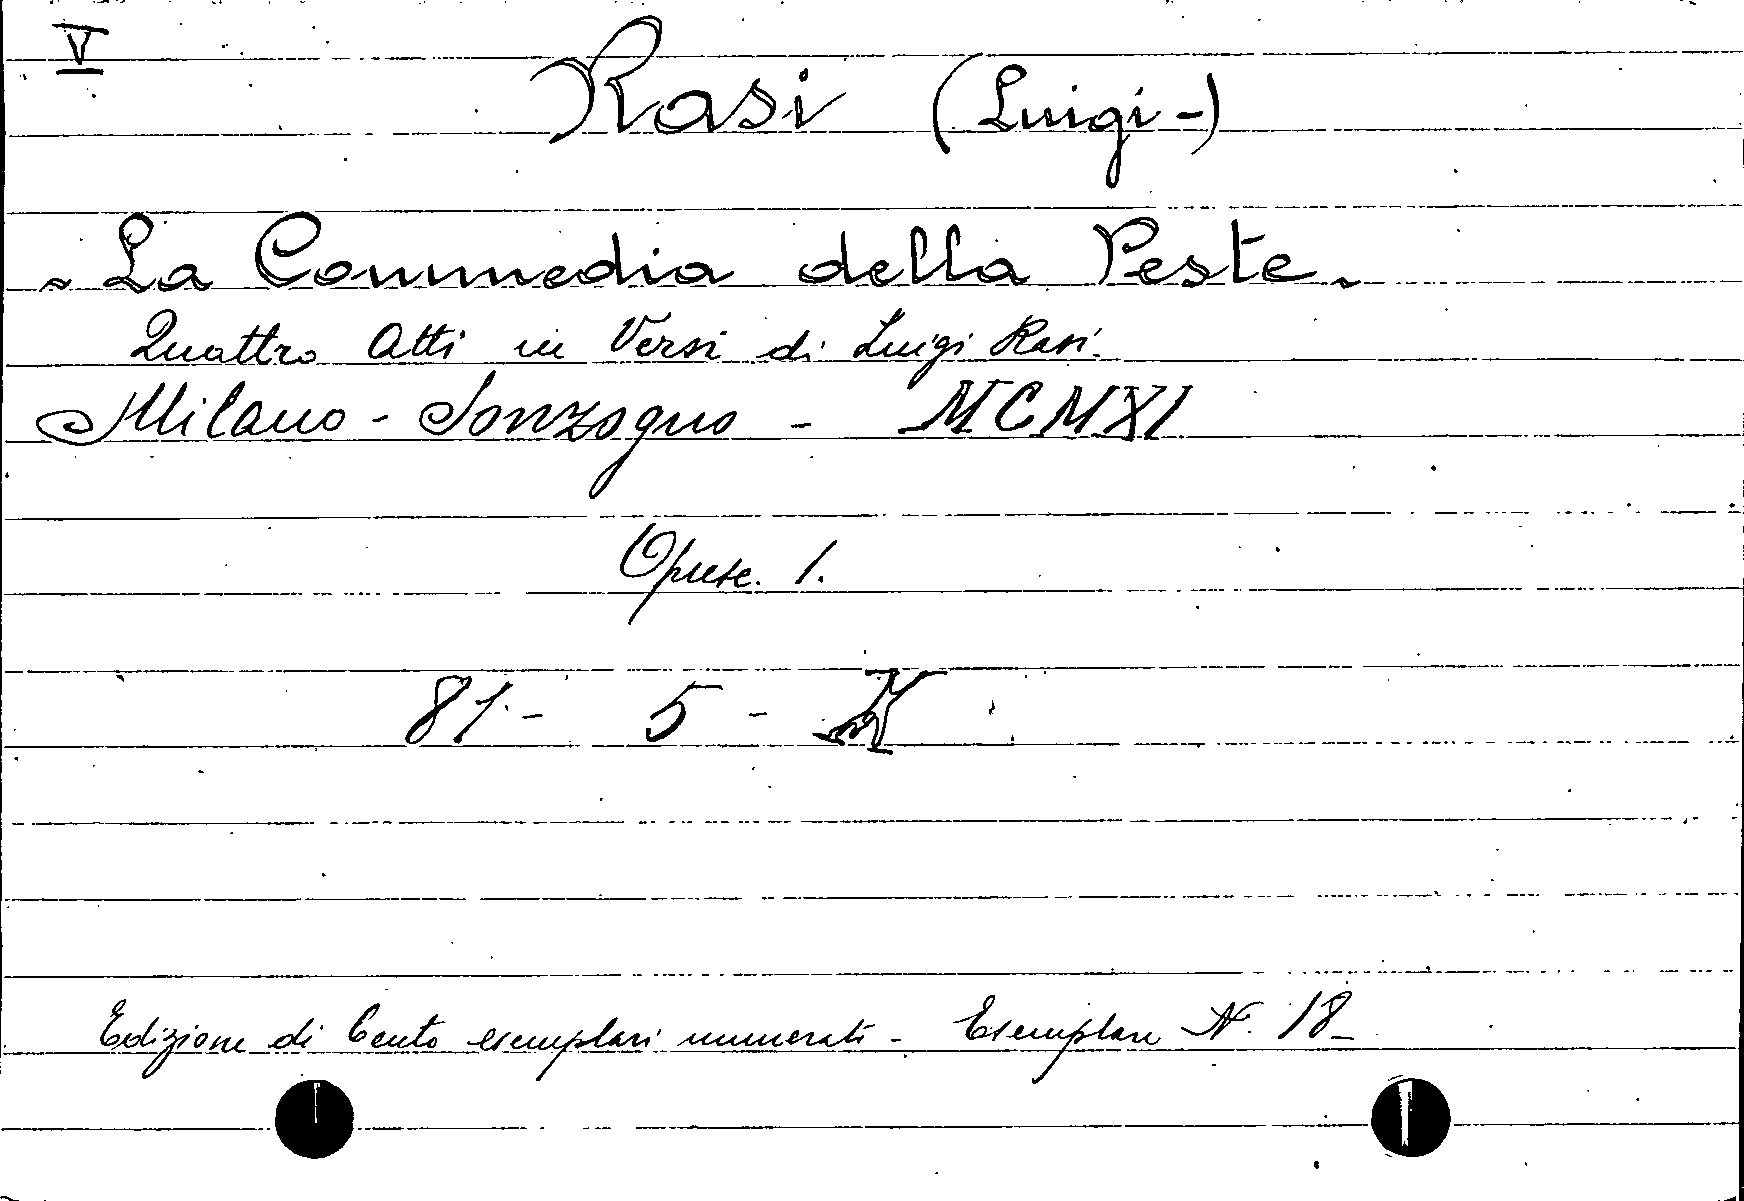 V
Rasi (Luigi-)
- La Commedia della Peste -
Quattro Atti in Versi di Luigi Rasi.
Milano - Sonzogno - MCMXI
Opusc. 1.
81 - 5 -
Edizione di Cento esemplari numerati - Esemplare N. 18 -